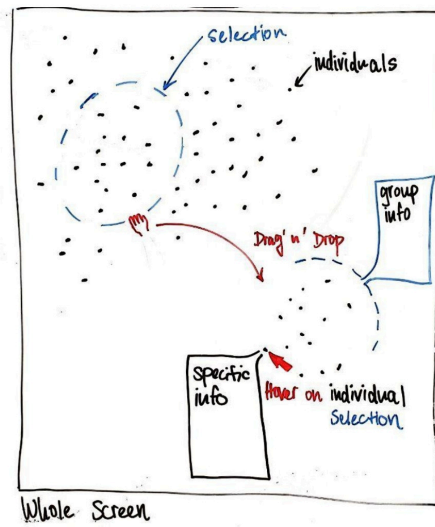 selection
individuals
group
info
Drag'n' Drop
specific
info
Hover on individual
Selection
Whole Screen